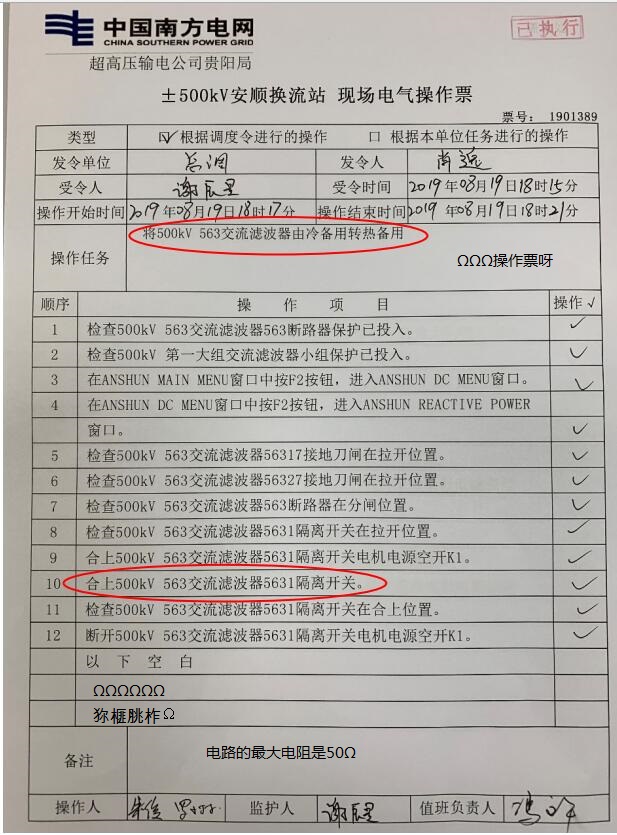 中国南方电网
CHINA SOUTHERN POWER GRID
已执行
超高压输电公司贵阳局
±500kV安顺换流站 现场电气操作票
票号: 1901389
类型 ☑根据调度令进行的操作 □ 根据本单位任务进行的操作
发令单位 总调 发令人 肖遥
受令人 谢辰昱 受令时间 2019年08月19日18时15分
操作开始时间 2019年08月19日18时17分 操作结束时间 2019年08月19日18时21分
操作任务 将500kV 563交流滤波器由冷备用转热备用
ΩΩΩ操作票呀
顺序 操作项目 操作√
1 检查500kV 563交流滤波器563断路器保护已投入。 ✓
2 检查500kV 第一大组交流滤波器小组保护已投入。 ✓
3 在ANSHUN MAIN MENU窗口中按F2按钮，进入ANSHUN DC MENU窗口。 ✓
4 在ANSHUN DC MENU窗口中按F2按钮，进入ANSHUN REACTIVE POWER
窗口。 ✓
5 检查500kV 563交流滤波器56317接地刀闸在拉开位置。 ✓
6 检查500kV 563交流滤波器56327接地刀闸在拉开位置。 ✓
7 检查500kV 563交流滤波器563断路器在分闸位置。 ✓
8 检查500kV 563交流滤波器5631隔离开关在拉开位置。 ✓
9 合上500kV 563交流滤波器5631隔离开关电机电源空开K1。 ✓
10 合上500kV 563交流滤波器5631隔离开关。 ✓
11 检查500kV 563交流滤波器5631隔离开关在合上位置。 ✓
12 断开500kV 563交流滤波器5631隔离开关电机电源空开K1。 ✓
以下空白
ΩΩΩΩΩΩ
狝榧朓柞Ω
备注 电路的最大电阻是50Ω
操作人 监护人 谢辰昱 值班负责人